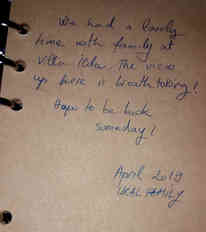 We had a lovely
time with family at
Villa The view
up here is breathtaking!
Hope to be back
someday!
April 2019
FAMILY